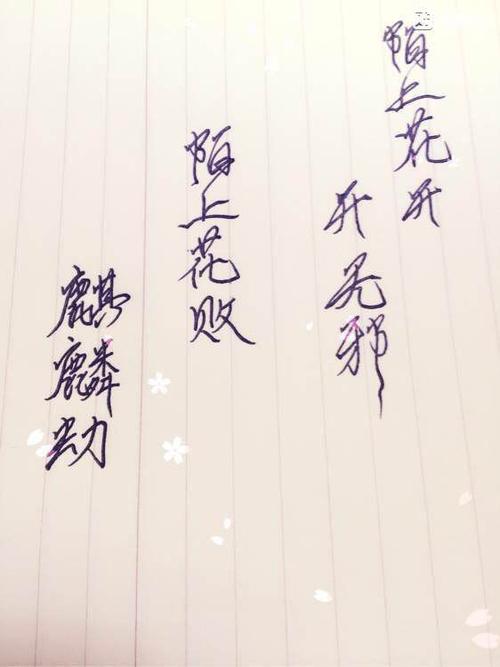 陌上花开
开无邪
陌上花败
麒麟劫